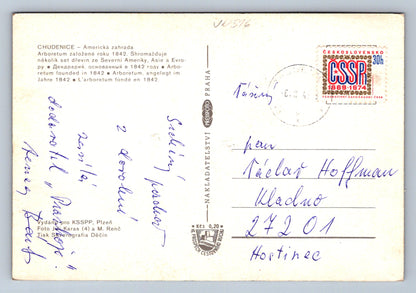 CHUDENICE – Americká zahrada.
Arboretum založeno roku 1842. Shromažďuje
několik set dřevin ze Severní Ameriky, Asie a Evro-
py • Дендрарий, основанный в 1842 году • Arbo-
retum founded in 1842 • Arboretum, angelegt im
Jahre 1842 • L'arboretum fondé en 1842
Srdečný pozdrav
z dovolené
zasílá
Vydalo pro KSSPP, Plzeň
Foto Jar. Karas (4) a M. Renč
Tisk Severografia Děčín
NAKLADATELSTVÍ ORBIS PRAHA
Kčs 0,20
ČESKOSLOVENSKO
30h
ČSSR
1968-1974
Vážený
pan
Václav Hoffman
Kladno
27201
Hostinec